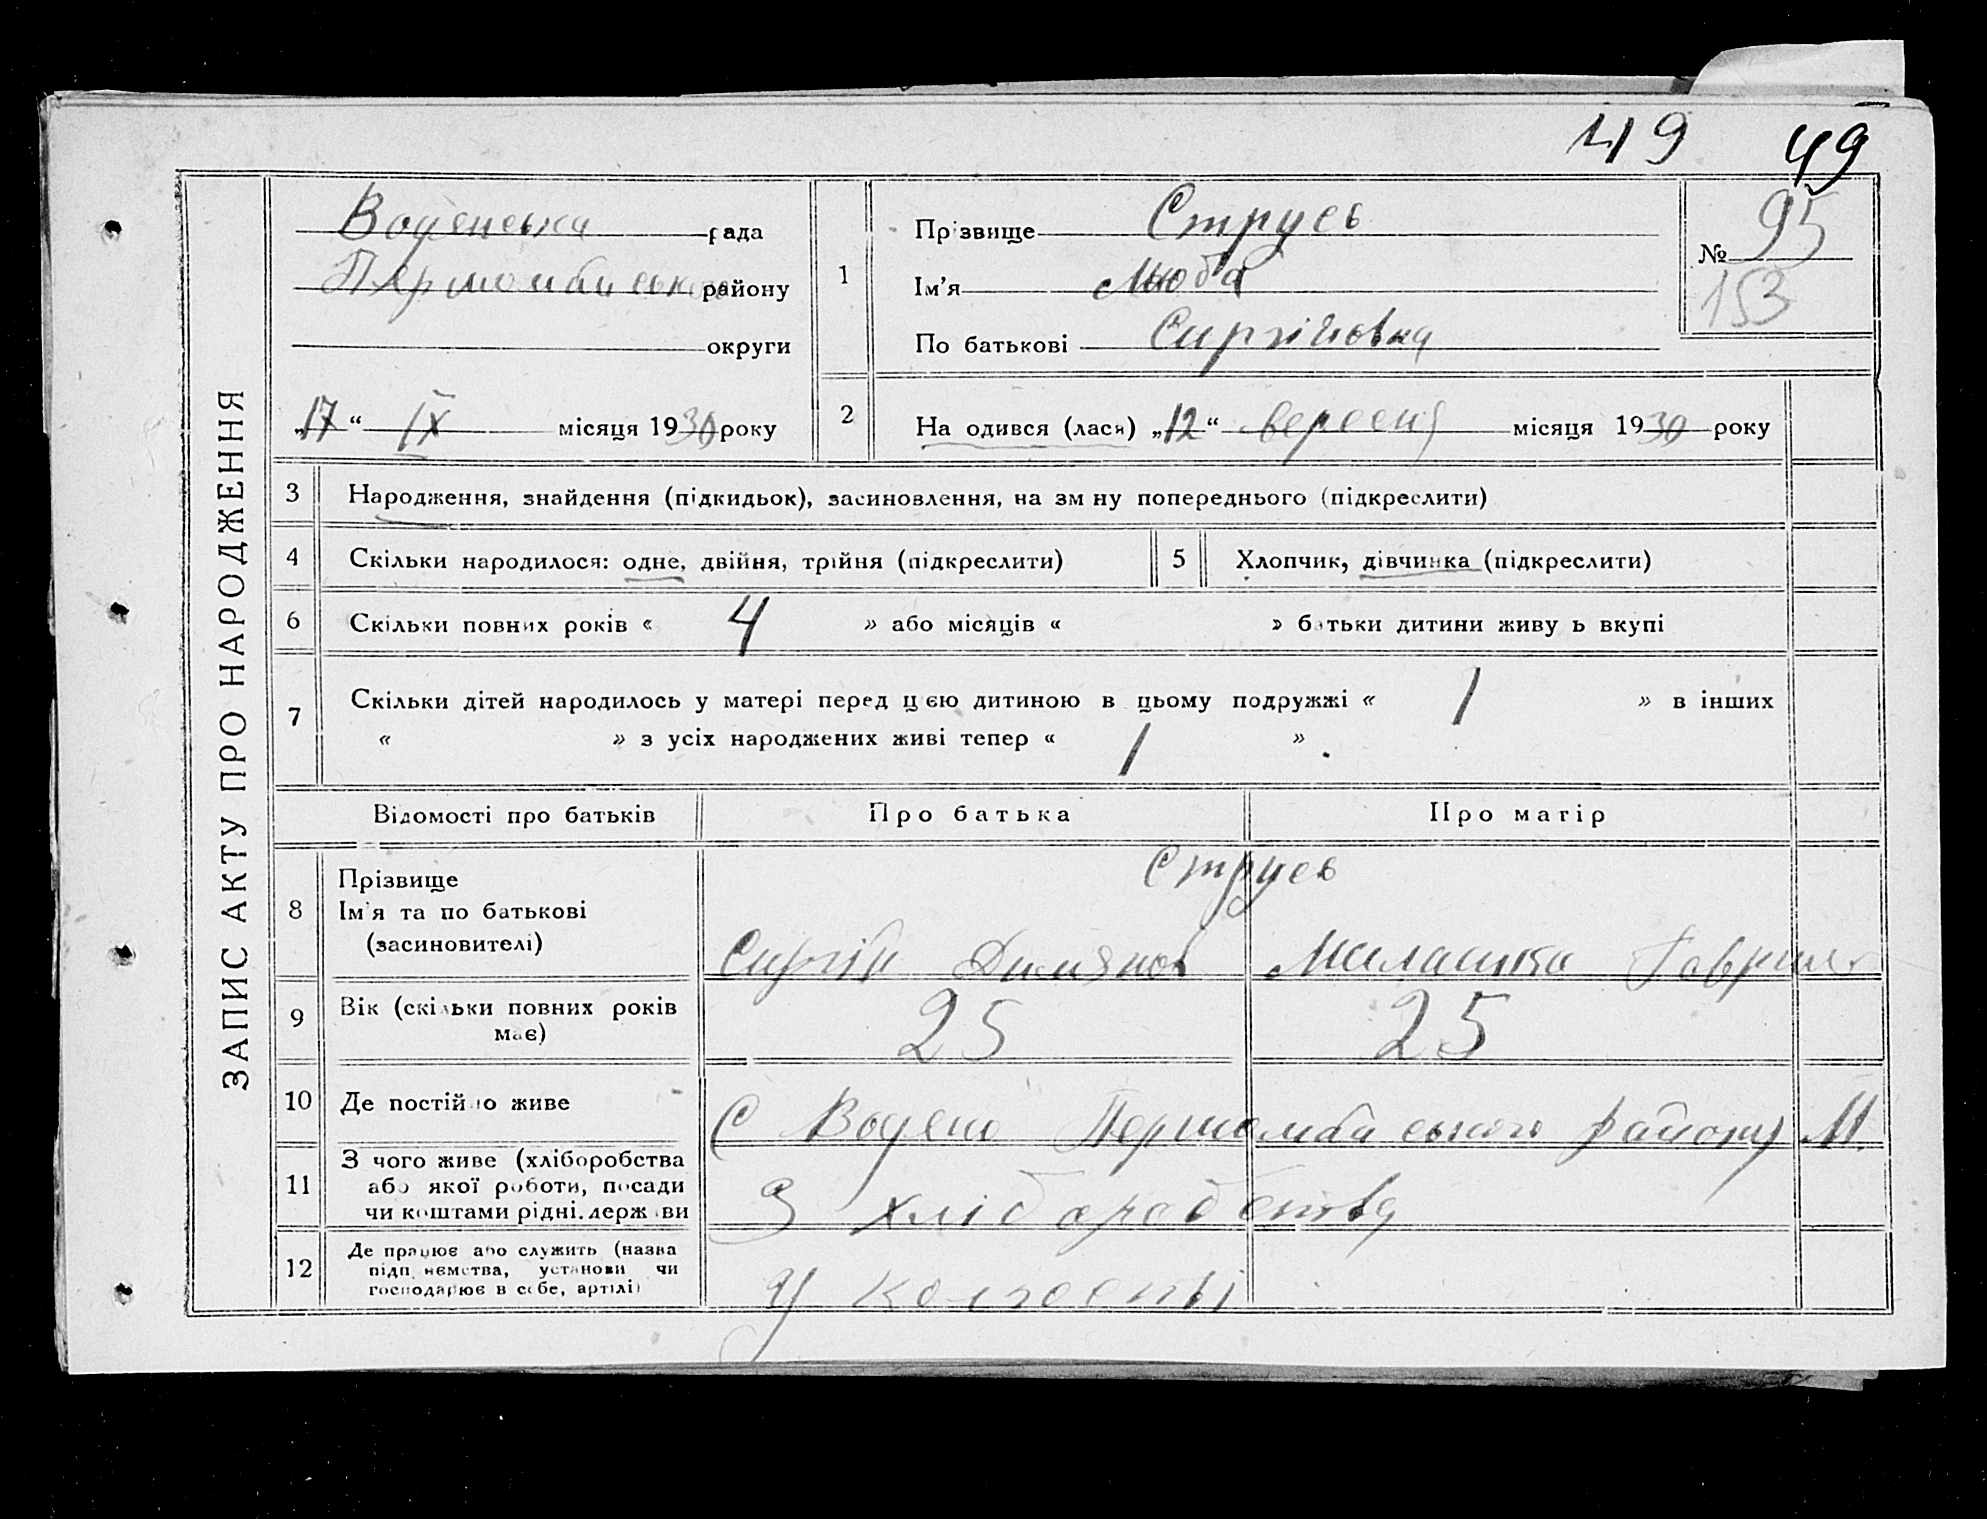 49 49
ЗАПИС АКТУ ПРО НАРОДЖЕННЯ
Водянська рада
Першомайського району
округи
„17“ IX місяця 1930 року
1
Прізвище Струсь
Ім'я Люба
По батькові Сиргіївна
№ 95
153
2 На одився (лася) „12“ вересня місяця 1930 року
3 Народження, знайдення (підкидьок), засиновлення, на зм ну попереднього (підкреслити)
4 Скільки народилося: одне, двійня, трійня (підкреслити) 5 Хлопчик, дівчинка (підкреслити)
6 Скільки повних років « 4 » або місяців « » батьки дитини живу ь вкупі
7 Скільки дітей народилось у матері перед цією дитиною в цьому подружжі « 1 » в інших
« » з усіх народжених живі тепер « 1 ».
Відомості про батьків Про батька Про матір
8 Прізвище
Ім'я та по батькові
(засиновителі)
Струсь
Сиргій Димянов Милашка Гаврил
9 Вік (скільки повних років
має)
25 25
10 Де постійно живе
С Водяно Першомайського району М.
11 З чого живе (хліборобства
або якої роботи, посади
чи коштами рідні. держави
З хліборобства
12 Де працює або служить (назва
підприємства, установи чи
господарює в себе, артілі)
У колгоспі